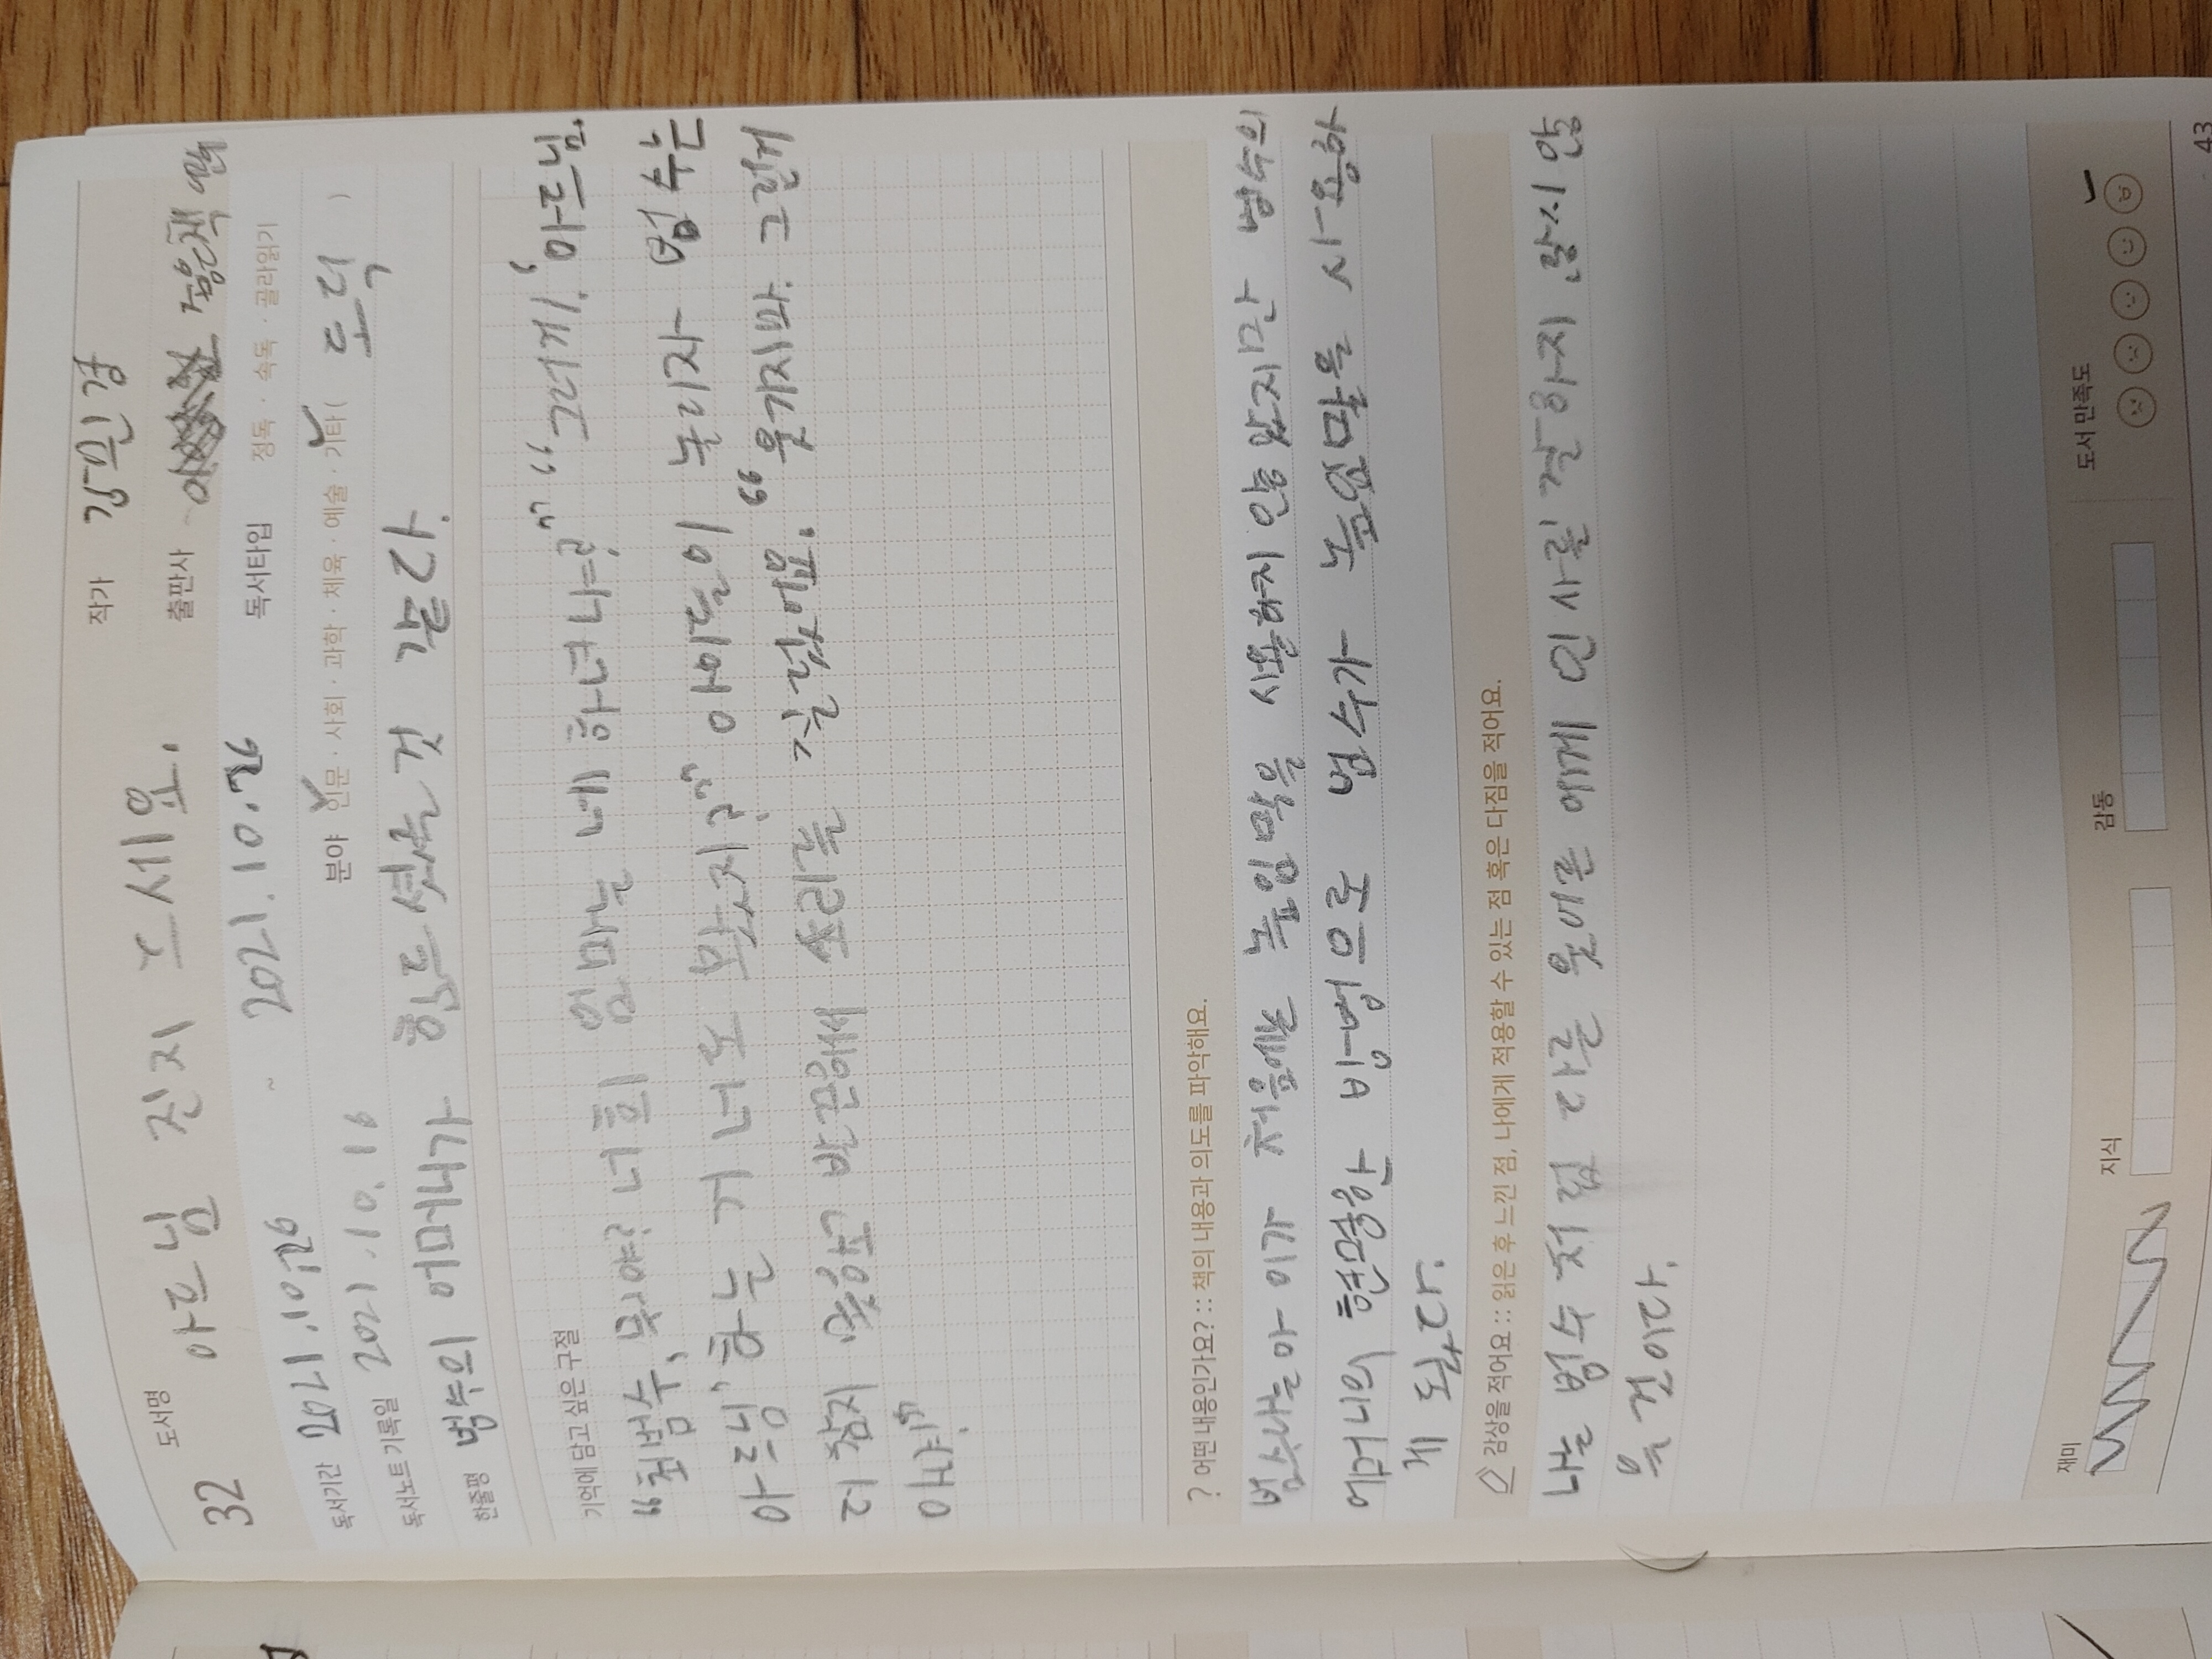 32 도서명 아드님 진지 드세요.
작가 강민경
출판사 좋은책
독서기간 2021.10.26 ~ 2021.10.26
독서타입 정독 · 속독 · 골라읽기
독서노트 기록일 2021.10.16
분야 인문 · 사회 · 과학 · 체육 · 예술 · 기타( 도덕 )
한줄평 범수의 어머니가 힘드셨을 것 같다.
기억에 담고 싶은 구절
“최범수, 뭐야? 너희 엄마는 네 하녀냐?” “그러게!. ‘아드님.
아드님’ 하는 거 너도 봤지?” 아이들이 놀리자 범수는
더 참지 못하고 발끈해서 소리를 질렀어요. “웃기지마. 그런게
아냐!”
? 어떤 내용인가요? :: 책의 내용과 의도를 파악해요.
범수나는 아이가 처음에는 높임막을 사용하지 않았지만 범수의
어머니의 현명한 방법으로 범수가 높임말을 사용하
게 됬다.
감상을 적어요 :: 읽은 후 느낀 점, 나에게 적용할 수 있는 점 혹은 다짐을 적어요.
나는 범수 처럼 다른 웃어른 에게 인사를 잘하지 않지 않
을 것이다.
재미 지식 감동 도서 만족도
43